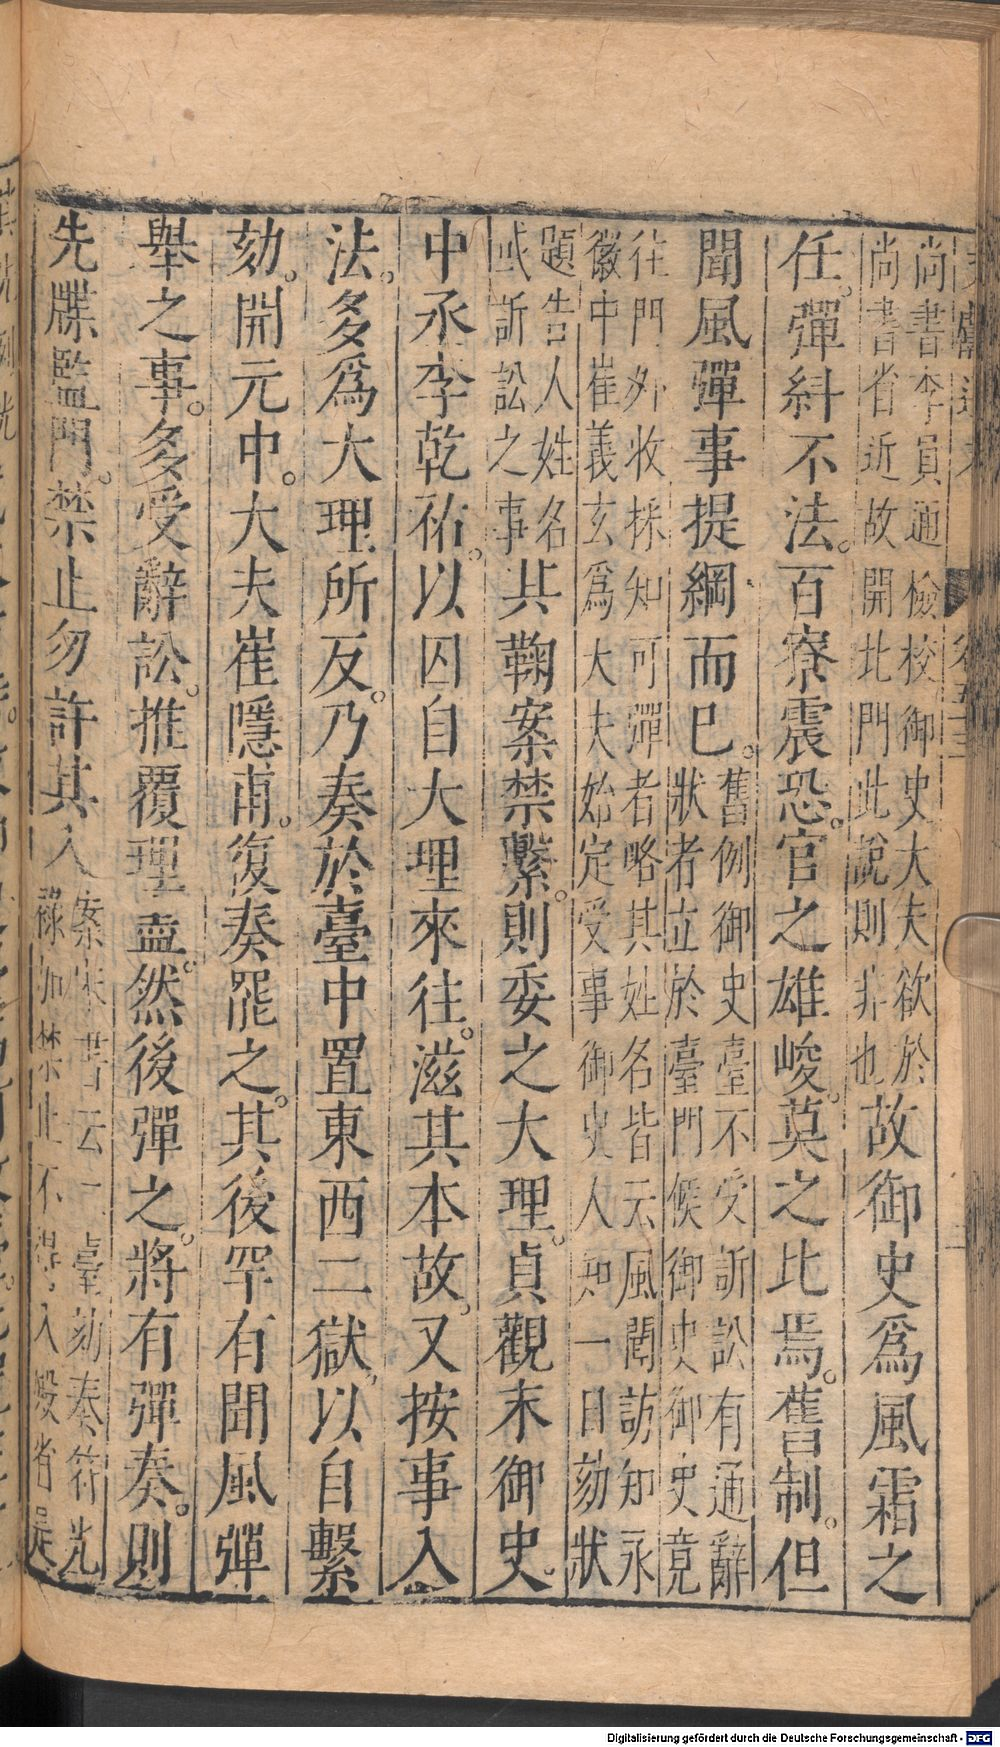 尚書李員通檢校御史大夫欲於
尚書省近故開北門此說則非也
故御史爲風霜之
任。彈糾不法。百寮震恐。官之雄峻。莫之比焉。舊制。但
聞風彈事提綱而已。
舊例御史臺不受訴訟有通辭
狀者立於臺門候御史御史竟
往門外收採知可彈者略其姓名皆云風聞訪知永
徽中崔義玄爲大夫始定受事御史人知一日劾狀
題告人姓名
或訴訟之事
其鞠案禁繫。則委之大理。貞觀末御史。
中丞李乾祐。以囚自大理來往。滋其本故。又按事入
法。多爲大理所反。乃奏於臺中置東西二獄。以自繫
劾。開元中。大夫崔隱甫。復奏罷之。其後罕有聞風彈
舉之事。多受辭訟。推覆理盡。然後彈之。將有彈奏。則
先牒監門。禁止勿許其入
案宋書云二臺劾奏符光
祿加禁止不得入殿省是
Digitalisierung gefördert durch die Deutsche Forschungsgemeinschaft - DFG